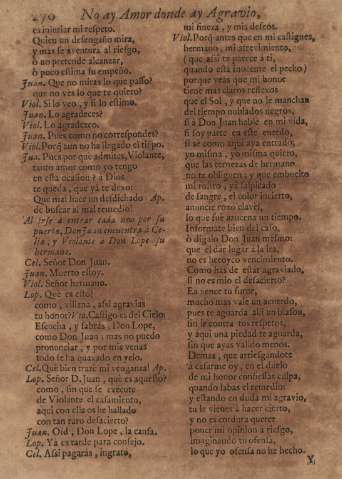 270 No ay Amor donde ay Agravio,
es injuriar mi respeto.
Quien un desengaño mira,
y mas se aventura al riesgo,
ò no pretende alcançar,
ò poco estima su empeño.
Juan. Que no miras lo que passo?
que no ves lo que te quiero?
Viol. Si lo veo, y si lo estimo.
Juan. Lo agradeces?
Viol. Lo agradezco.
Juan. Pues como no correspondes?
Viol. Porq̃ aun no ha llegado el tiẽpo.
Jua. Pues por que admites, Violante,
tanto amor como yo tengo
en esta ocasion? à Dios
te queda, que yà te dexo:
Que mal haze un desdichado Ap.
de buscar al mal remedio!
Al irse à entrar cada uno por su
puerta, Don Juan encuentra à Ce-
lia, y Violante à Don Lope su
hermano.
Cel. Señor Don Juan.
Juan. Muerto estoy.
Viol. Señor hermano.
Lop. Què es esto!
como, villana, assi agravias
tu honor? Viol. Castigo es del Cielo:
Escucha, y sabràs, Don Lope,
como Don Juan; mas no puedo
pronunciar, y por mis venas
todo se ha quaxado en yelo.
Cel. Què bien trazè mi vengança! Ap.
Lop. Señor D. Juan, què es aquesto?
como, sin que se execute
de Violante el casamiento,
aqui con ella os he hallado
con tan raro desacierto?
Juan. Oid, Don Lope, la causa.
Lop. Ya es tarde para consejo.
Cel. Assi pagaràs, ingrato,
mi fineza, y mis deseos.
Viol. Porq̃ antes que en mi castigues,
hermano, mi atrevimiento,
(que assi te parece à ti,
quando està inocente el pecho)
por que veas que mi honor
tiene mas claros reflexos
que el Sol, y que no le manchan
del tiempo nublados negros,
si à Don Juan hablè en mi vida,
si soy parte en este enredo,
si sè como aqui aya entrado,
yo misma, yo misma quiero,
que las ternezas de hermano
no te obliguen; y que embuelto
mi rostro, yà salpicado
de sangre, el color incierto,
anuncie roxo clavel,
lo que fue azucena un tiempo.
Informate bien del caso,
ò digalo Don Juan mesmo:
que el dar lugar à la ira,
no es heroyco vencimiento.
Como has de estar agraviado,
si no es mio el desacierto?
En vence tu furor,
mucho mas vale un acuerdo,
pues te aguarda alli un blason,
sin ir contra tus respetos,
y aqui una piedad te aguarda,
sin que ayas valido menos.
Demàs, que arriesgandote
à casarme oy, en el duelo
de mi honor confiessas culpa,
quando sabas el retardio:
y estando en duda mi agravio,
tu le vienes à hacer cierto,
y no es cordura querer
poner mi opinion à riesgo,
imaginando tu ofensa,
lo que yo ofensa no he hecho.
Y,